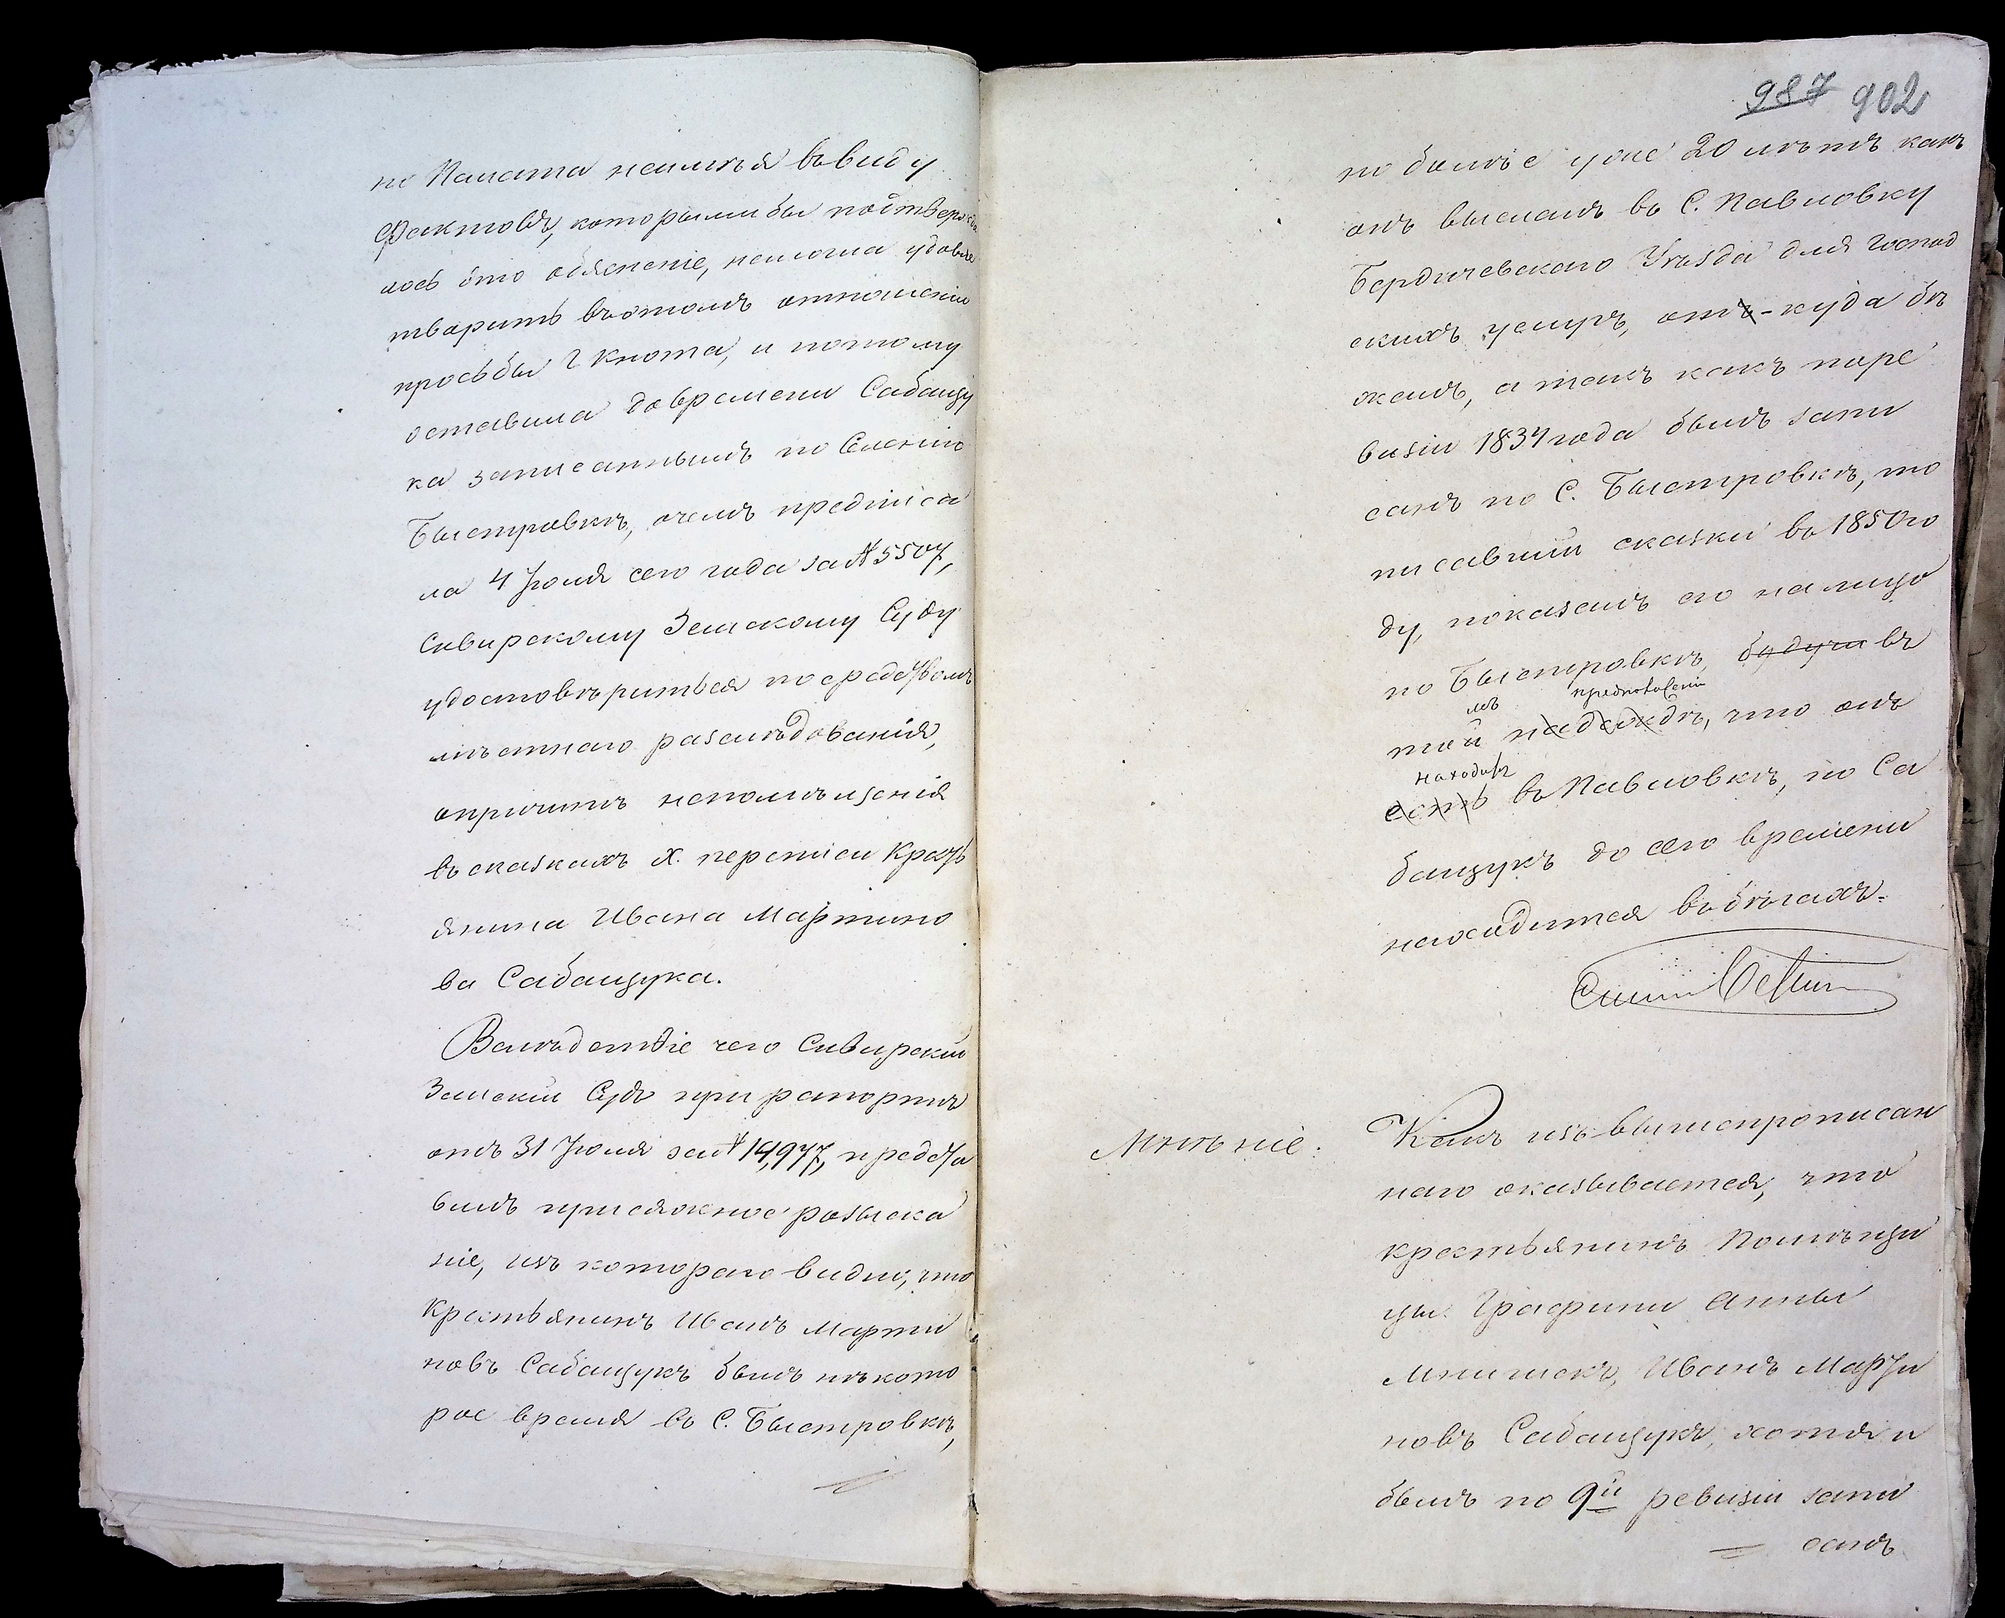 но Палата неимѣя въ виду
фактовъ, которыми бы подтвержда
лось это объясненіе, немогла удовле
творить въ этомъ отношеніи
просьбы г Кнота, и потому
оставила до времени Сабащу
ка записаннымъ по Селенію
Быстровкѣ, о чемъ предписа
ла 4 Іюля сего года за № 5507,
Сквирскому Земскому Суду
удостовѣриться посредствомъ
мѣстнаго разслѣдованія,
о причинѣ непомѣщенія
въ сказкахъ X. переписи Кресть
янина Ивана Мартино
ва Сабащука.
Вслѣдствіе чего Сквирскій
Земскій Судъ при рапортѣ
отъ 31 Іюля за № 14,977, предста
вилъ присяжное розыска
ніе, изъ котораго видно, что
Крестьянинъ Иванъ Марти
новъ Сабащукъ былъ нѣкото
рое время въ С. Быстровкѣ,
987 902
но болѣе уже 20 лѣтъ какъ
онъ высланъ въ С. Павловку
Бердичевскаго Уѣзда для господ
скихъ услугъ, отъ-куда бѣ
жалъ, а такъ какъ по ре
визіи 1834 года былъ запи
санъ по С. Быстровкѣ, то
писавшій сказки въ 1850 го
ду, показалъ его на лицо
по Быстровкѣ, будучи въ
мъ предположеніи
той надеждѣ, что онъ
находится
есть въ Павловкѣ, но Са
бащукъ до сего времени
находится въ бѣгахъ.
Мнѣніе.
Какъ изъ вышепрописан
наго оказывается, что
крестьянинъ Помѣщи
цы Графини Анны
Мнишекъ, Иванъ Марти
новъ Сабащукъ, хотя и
былъ по 9й ревизіи запи
санъ